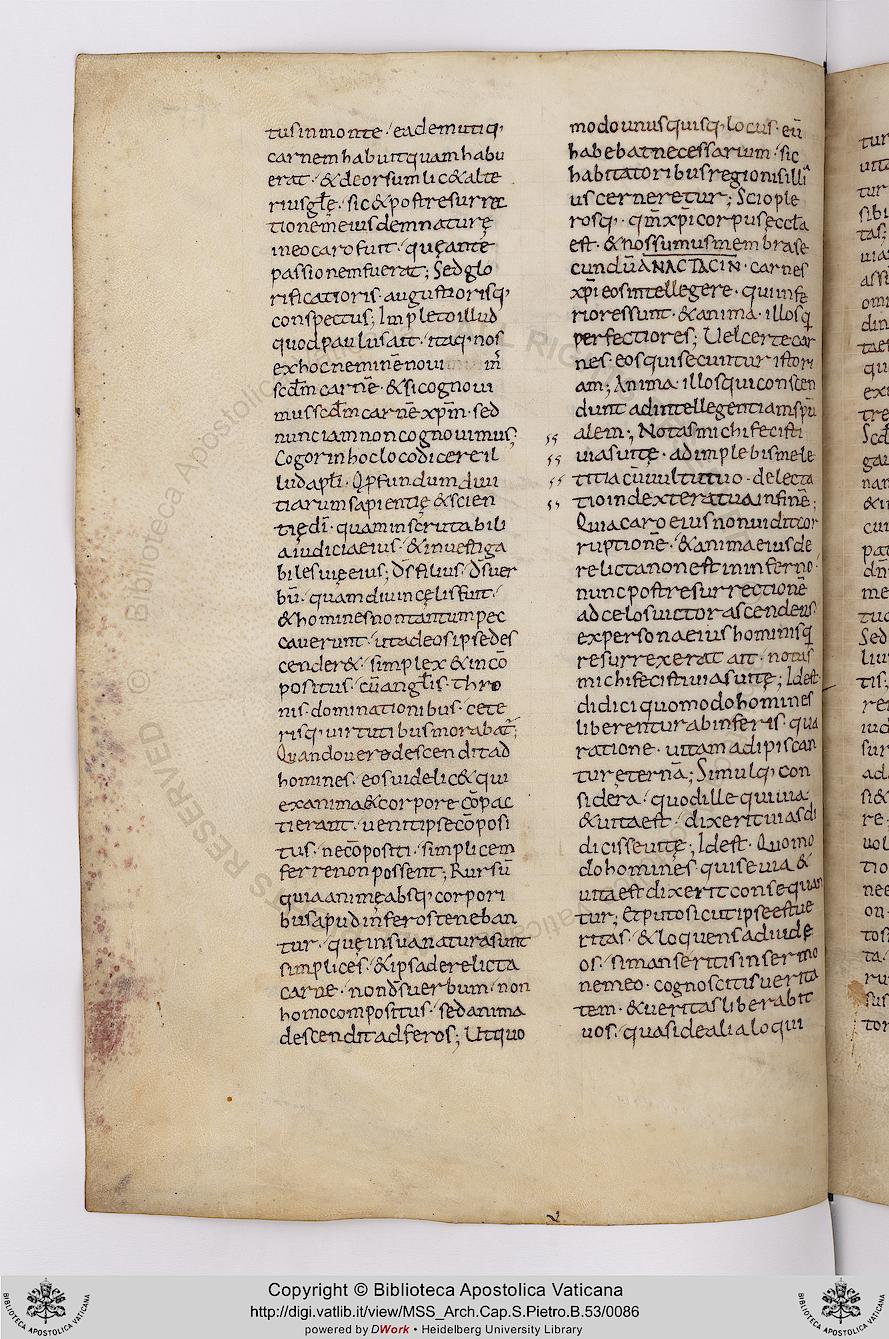 tusinmonte· eademutiq;
carnem habuit quam habu
erat· & deorsum lic& alte
riusgłę· sic& post resurrec
tionem̄ eius dem naturę
in eo caro fuit· quę ante
passionem fuerat; Sed glo
rificatioris· augustiorisq;
conspectus; Impleto illud
quod paulus ait· itaq; nos
ex hoc neminē noui
scdm̄ carnē· & si cognoui
mus scdm̄ carnē xp̄m· sed
nunc iam non cognouimus;
Cogor in hoc loco dicere il
lud apłi· O p̱fundum diui
tiarum sapientię & scien
tię dī· quam inscrutabili
a iudicia eius· & inuestiga
biles uię eius; d̄s filius· d̄s uer
bū· quamdiu in cęlis fuit·
& homines non tantum pec
cauerunt· ut ad eos ipse des
cender&· simplex & incō
positus· cū angłis· thro
nis· dominationibus· cete
risq; uirtutibus morabat̄;
Quando uero descendit ad
homines· eos uidelic& qui
ex anima & corpore cōpac
ti erant· uenit ipse cōposi
tus· ne cōpositi· simplicem
ferre non possent; Rursū
quia animę absq; corpori
bus apud inferos teneban
tur· quę in sua natura sunt
simplices· & ipsa derelicta
carne· non d̄s uerbum· non
homo compositus· sed anima
descendit ad feros; Ut quo
modo unusquisq; locus· eū
habebat necessarium· sic
habitatoribus regionis illi
us cerneretur; Scio ple
rosq;· qm̄ xp̄i corpus eccła
est· & nos sumus membra se
cundū ANACTACIN· carnes
xp̄i eos intellegere· qui infe
riores sunt· & anima· illos q
perfectiores; Uel certe car
nes· eos qui secuntur istori
am; Anima· illos qui conscen
dunt ad intellegentiam spū
alem; Notas michi fecisti
uias uitę· adimplebis me le
titia cū uultu tuo· delecta
tio in dextera tua in finē;
Quia caro eius non uidit cor
ruptionē· & anima eius de
relicta non est in inferno·
nunc post resurrectionē
ad celos uictor ascendens·
ex persona eius hominis q
resurrexerat ait· notas
michi fecisti uias uitę; Idest·
didici quomodo homines
liberentur ab inferis· qua
ratione· uitam adipiscan
tur ęternā; Simulq; con
sidera· quod ille qui uia
& uita est· dixerit uias di
dicisse uitę; Idest· Quomo
do hominęs· qui se uia &
uita est dixerit consequan
tur; Et puto sicut ipse est ue
ritas· & loquens ad iudę
os· si manseritis in sermo
ne meo· cognoscitis uerita
tem· & ueritas liberabit
uos· quasi de alia loqui
Copyright © Biblioteca Apostolica Vaticana
http://digi.vatlib.it/view/MSS_Arch.Cap.S.Pietro.B.53/0086
powered by DWork • Heidelberg University Library